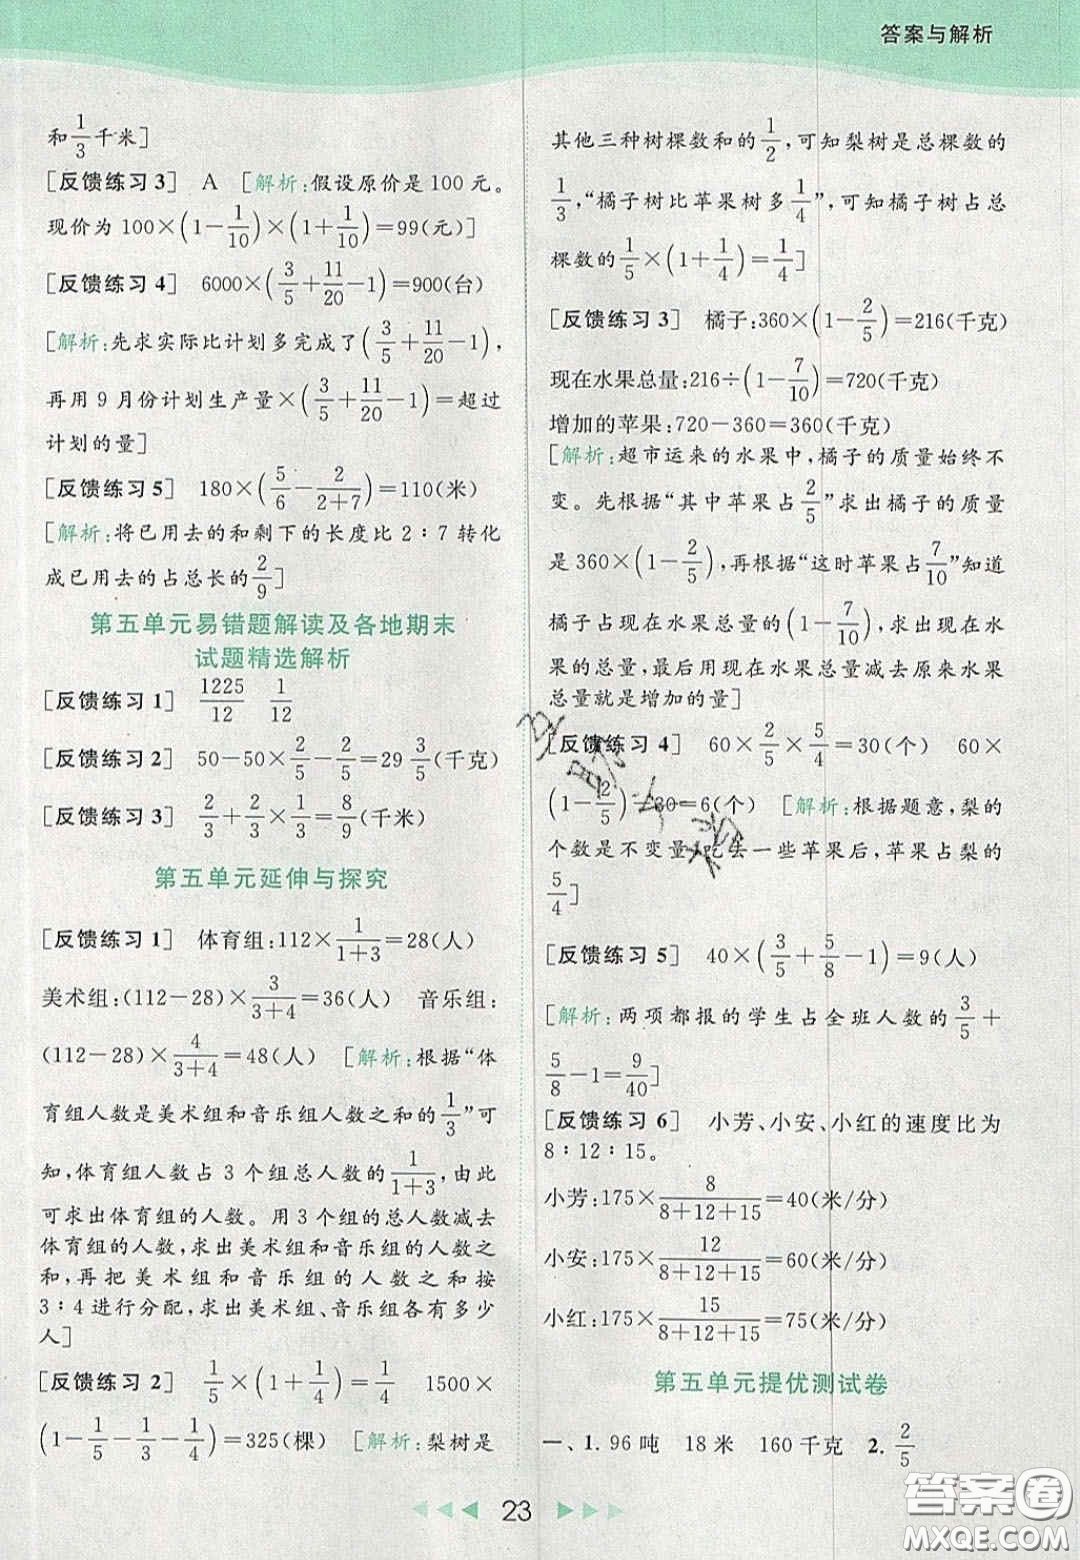 答案与解析
和1/3千米]
[反馈练习3] A [解析:假设原价是100元。
现价为100×(1-1/10)×(1+1/10)=99(元)]
[反馈练习4] 6000×(3/5+11/20-1)=900(台)
[解析:先求实际比计划多完成了(3/5+11/20-1),
再用9月份计划生产量×(3/5+11/20-1)=超过
计划的量]
[反馈练习5] 180×(5/6-2/(2+7))=110(米)
[解析:将已用去的和剩下的长度比2∶7转化
成已用去的占总长的2/9]
第五单元易错题解读及各地期末
试题精选解析
[反馈练习1] 1225/12 1/12
[反馈练习2] 50-50×2/5-2/5=29 3/5(千克)
[反馈练习3] 2/3+2/3×1/3=8/9(千米)
第五单元延伸与探究
[反馈练习1] 体育组:112×1/(1+3)=28(人)
美术组:(112-28)×3/(3+4)=36(人) 音乐组:
(112-28)×4/(3+4)=48(人) [解析:根据“体
育组人数是美术组和音乐组人数之和的1/3”可
知,体育组人数占3个组总人数的1/(1+3),由此
可求出体育组的人数。用3个组的总人数减去
体育组的人数,求出美术组和音乐组的人数之
和,再把美术组和音乐组的人数之和按
3∶4进行分配,求出美术组、音乐组各有多少
人]
[反馈练习2] 1/5×(1+1/4)=1/4 1500×
(1-1/5-1/3-1/4)=325(棵) [解析:梨树是
其他三种树棵数和的1/2,可知梨树是总棵数的
1/3,“橘子树比苹果树多1/4”,可知橘子树占总
棵数的1/5×(1+1/4)=1/4]
[反馈练习3] 橘子:360×(1-2/5)=216(千克)
现在水果总量:216÷(1-7/10)=720(千克)
增加的苹果:720-360=360(千克)
[解析:超市运来的水果中,橘子的质量始终不
变。先根据“其中苹果占2/5”求出橘子的质量
是360×(1-2/5),再根据“这时苹果占7/10”知道
橘子占现在水果总量的(1-7/10),求出现在水
果的总量,最后用现在水果总量减去原来水果
总量就是增加的量]
[反馈练习4] 60×2/5×5/4=30(个) 60×
(1-2/5)-30=6(个) [解析:根据题意,梨的
个数是不变量,吃去一些苹果后,苹果占梨的
5/4]
[反馈练习5] 40×(3/5+5/8-1)=9(人)
[解析:两项都报的学生占全班人数的3/5+
5/8-1=9/40]
[反馈练习6] 小芳、小安、小红的速度比为
8∶12∶15。
小芳:175×8/(8+12+15)=40(米/分)
小安:175×12/(8+12+15)=60(米/分)
小红:175×15/(8+12+15)=75(米/分)
第五单元提优测试卷
一、1. 96吨 18米 160千克 2. 2/5
23
答案圈
MXQE.COM